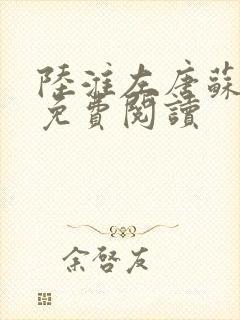 陸淮左唐蘇
免費閱讀
余啓友